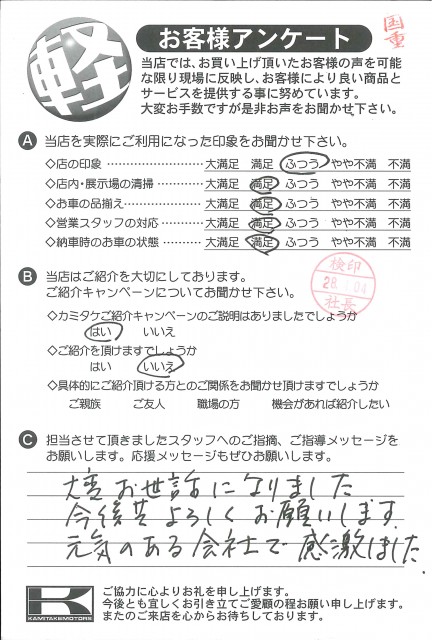 軽
お客様アンケート
国重
当店では、お買い上げ頂いたお客様の声を可能
な限り現場に反映し、お客様により良い商品と
サービスを提供する事に努めています。
大変お手数ですが是非お声をお聞かせ下さい。
A 当店を実際にご利用になった印象をお聞かせ下さい。
◇店の印象 大満足 満足 ふつう やや不満 不満
◇店内・展示場の清掃 大満足 満足 ふつう やや不満 不満
◇お車の品揃え 大満足 満足 ふつう やや不満 不満
◇営業スタッフの対応 大満足 満足 ふつう やや不満 不満
◇納車時のお車の状態 大満足 満足 ふつう やや不満 不満
B 当店はご紹介を大切にしてあります。
ご紹介キャンペーンについてお聞かせ下さい。
検印
社長
◇カミタケご紹介キャンペーンのご説明はありましたでしょうか
はい いいえ
◇ご紹介を頂けますでしょうか
はい いいえ
◇具体的にご紹介頂ける方とのご関係をお聞かせ頂けますでしょうか
ご親族 ご友人 職場の方 機会があれば紹介したい
C 担当させて頂きましたスタッフへのご指摘、ご指導メッセージを
お願いします。応援メッセージもぜひお願いします。
大変お世話になりました
今後共よろしくお願いします.
元気のある会社で感激しました
K
KAMITAKEMOTORS
ご協力に心よりお礼を申し上げます。
今後とも宜しくお引き立てご愛顧の程お願い申し上げます。
またのご来店を心からお待ちしております。